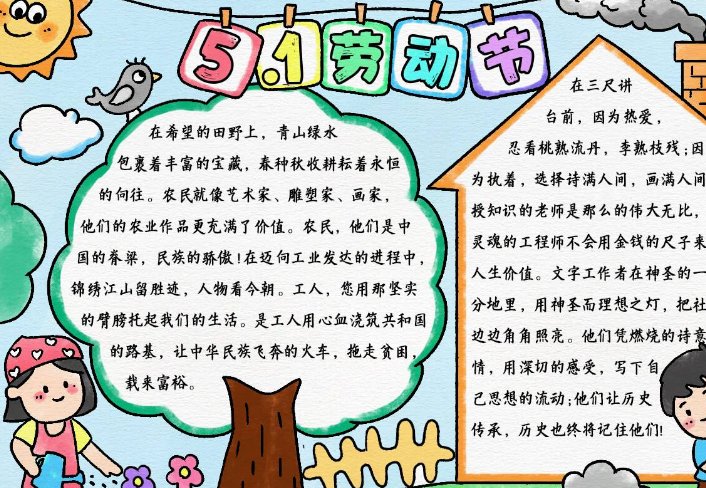 5.1劳动节
在希望的田野上，青山绿水
包裹着丰富的宝藏，春种秋收耕耘着永恒
的向往。农民就像艺术家、雕塑家、画家，
他们的农业作品更充满了价值。农民，他们是中
国的脊梁，民族的骄傲!在迈向工业发达的进程中，
锦绣江山留胜迹，人物看今朝。工人，您用那坚实
的臂膀托起我们的生活。是工人用心血浇筑共和国
的路基，让中华民族飞奔的火车，拖走贫困，
载来富裕。
在三尺讲
台前，因为热爱，
忍看桃熟流丹，李熟枝残;因
为执着，选择诗满人间，画满人间
授知识的老师是那么的伟大无比，
灵魂的工程师不会用金钱的尺子来
人生价值。文字工作者在神圣的一
分地里，用神圣而理想之灯，把社
边边角角照亮。他们凭燃烧的诗意
情，用深切的感受，写下自
己思想的流动;他们让历史
传承，历史也终将记住他们!